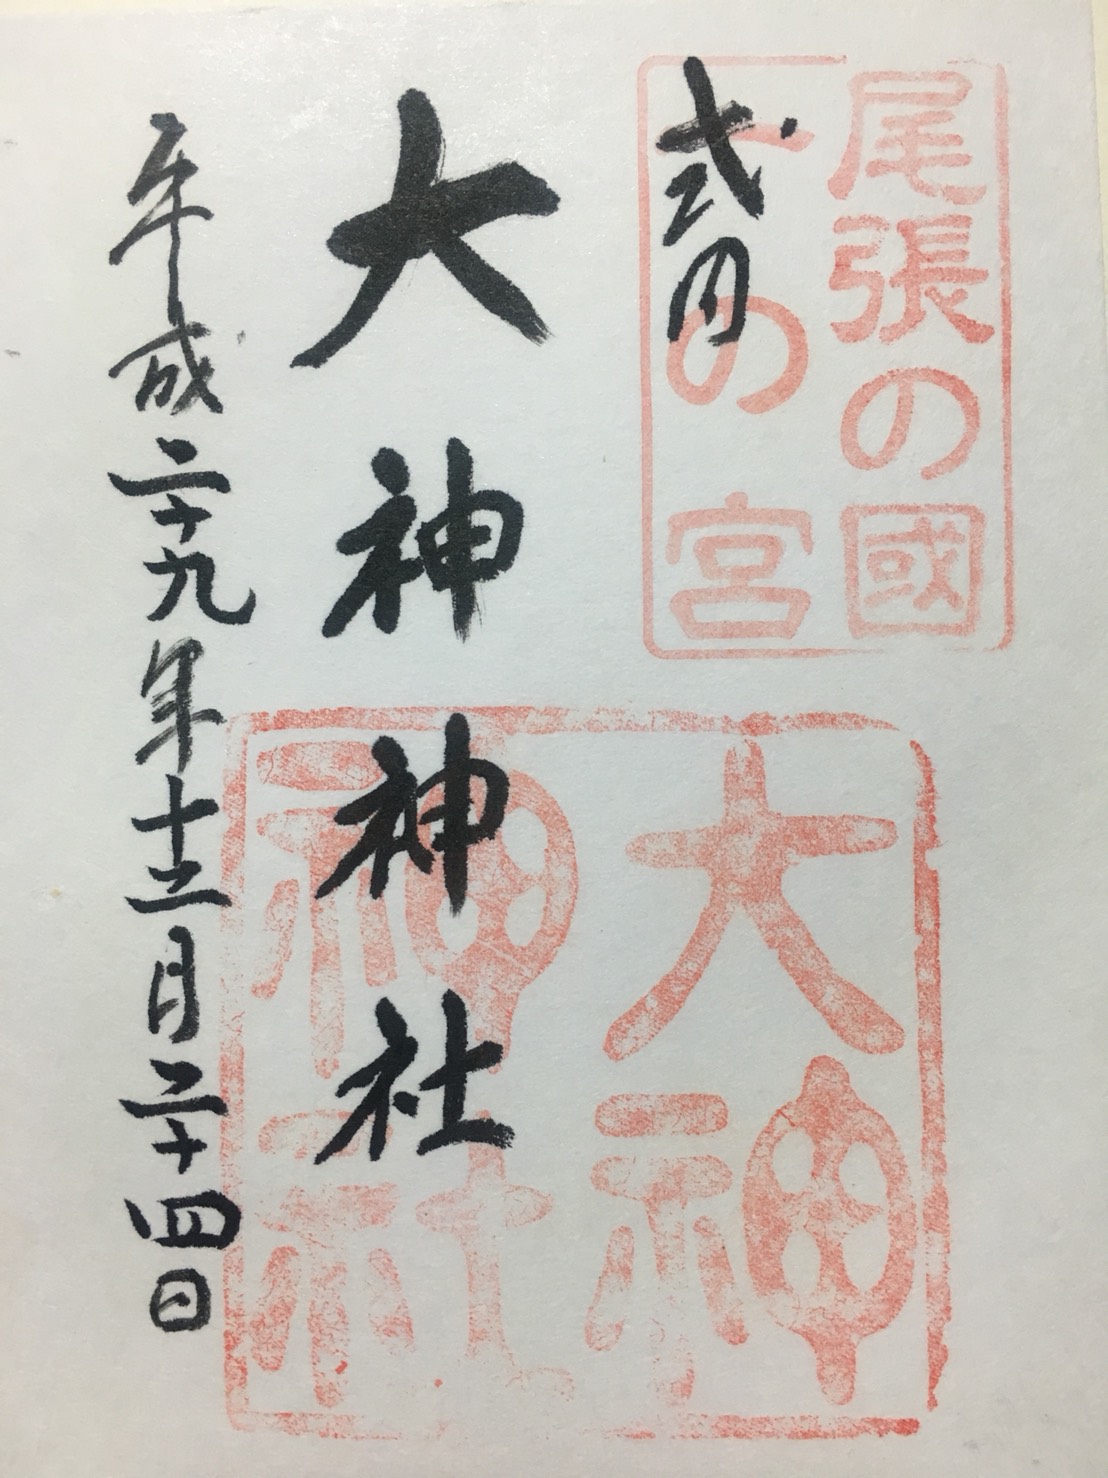 尾張の國
一の宮
式内
大神神社
大神
神社
平成二十九年十二月二十四日